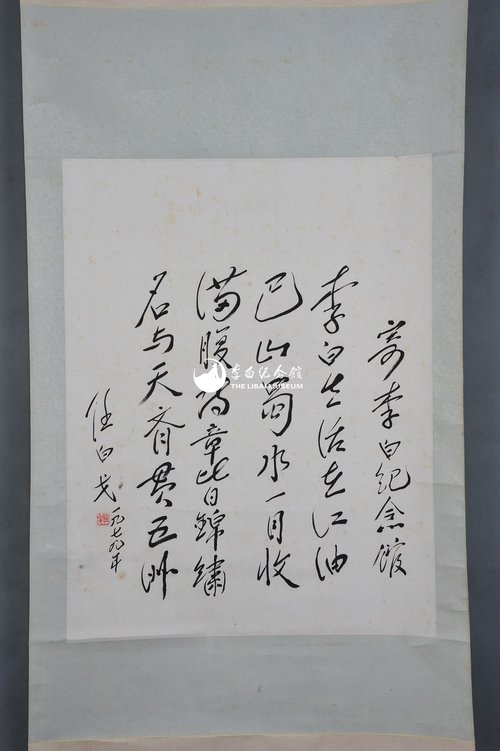 寄李白纪念馆
李白生活在江油
巴山蜀水一目收
满腹诗章皆錦繡
名与天齐贯五洲
任白戈
一九七九年
李白纪念馆
THE LIBAI MUSEUM